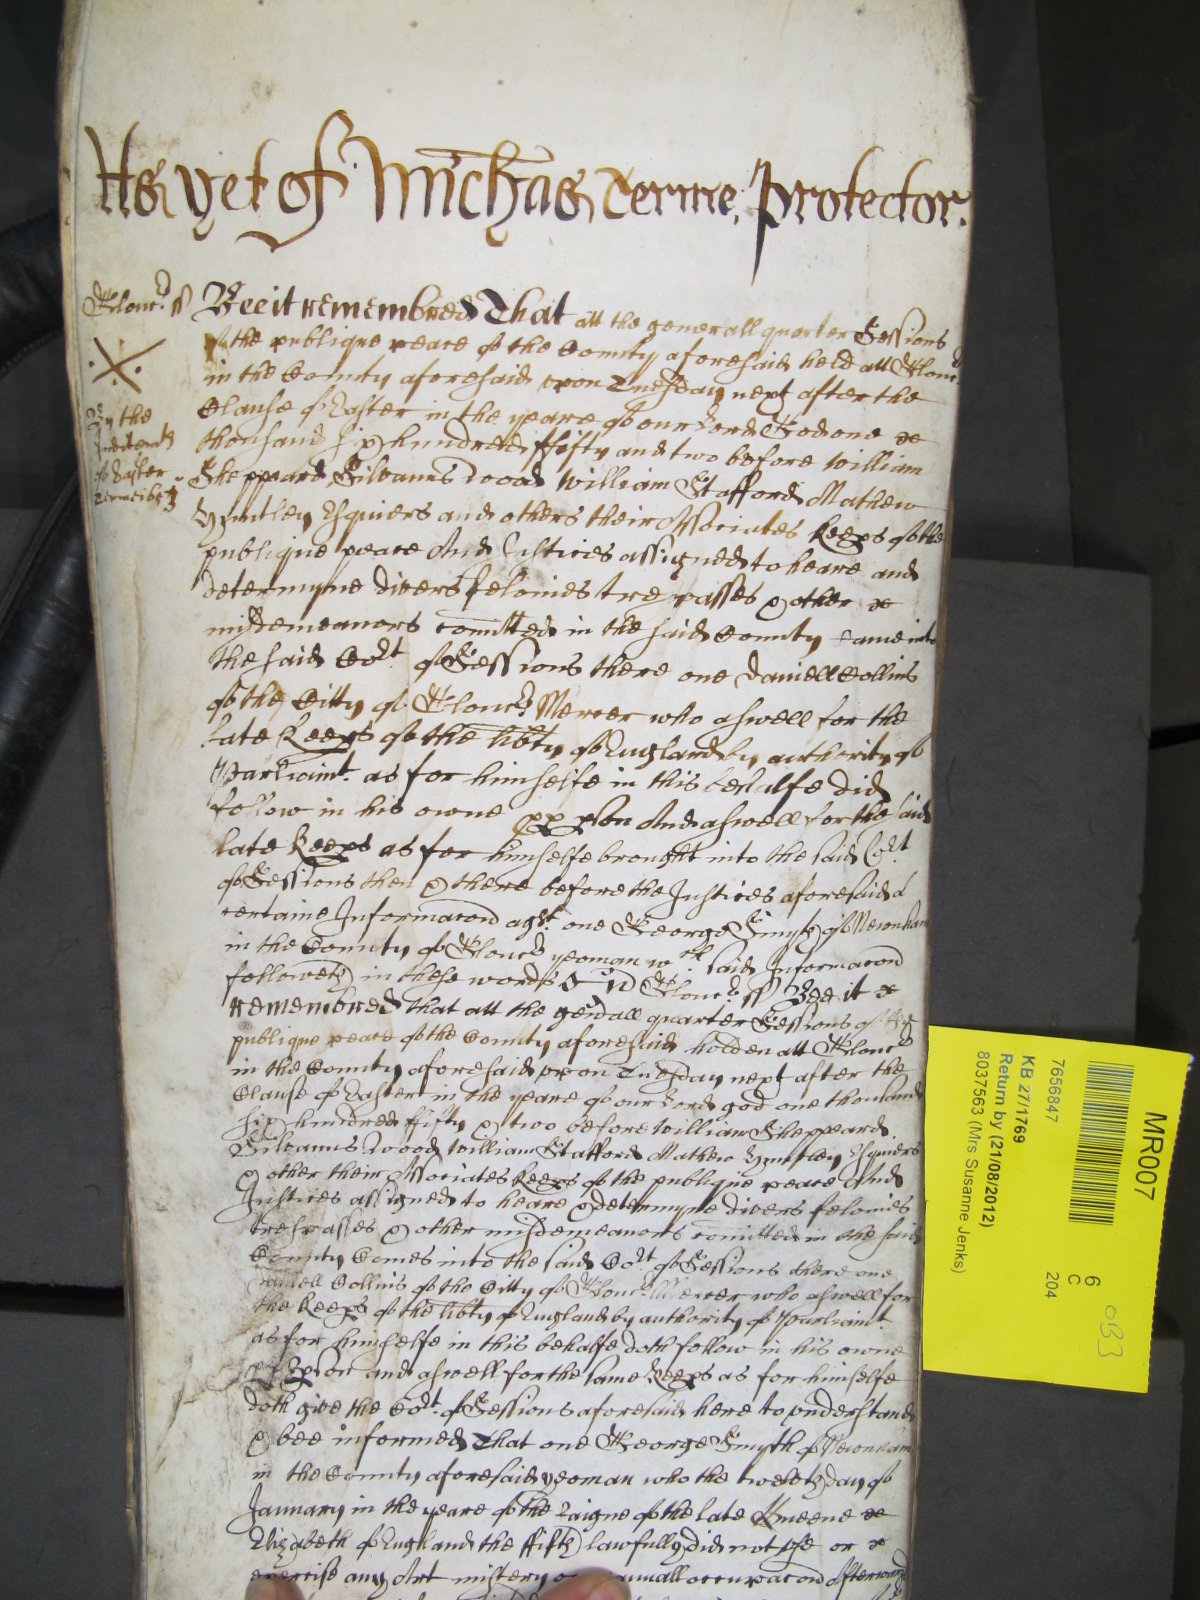 As yet of Michas Terme, Protector.
Glouc. ss Bee it remembred That att the generall quarter Sessions
of the publique peace of the County aforesaid held att Glouc
in the County aforesaid upon Tuesday next after the
Clause of Easter in the yeare of our Lord God one
thousand six hundred fifty and two before William
Sheppeard Silvanus Wood William Stafford Mathew
Huntley Esquiers and others their Associates Keeps of the
publique peace And Justices assigned to heare and
determyne divers felonies trespasses & other
misdemeanors comitted in the said County came into
the said Cort of Sessions there one Daniell Collins
of the Citty of Glouc Mercer who aswell for the
late Keeps of the libty of England by authority of
Parliamt. as for himselfe in this behalfe did
follow in his owne pp pson And aswell for the said
late Keeps as for himselfe brought into the said Cort
of Sessions then & there before the Justices aforesaid a
certaine Informacon agst one George Smyth of Newnham
in the County of Glouc yeoman wch said Informacon
followeth in these words Glouc ss Bee it
remembred that att the genall quarter Sessions of the
publique peace of the County aforesaid holden att Glouc
in the County aforesaid upon Tuesday next after the
Clause of Easter in the yeare of our Lord god one thousand
six hundred fifty & two before William Sheppeard
Silvanus Wood William Stafford Mathew Huntley Esquiers
& other their Associates Keeps of the publique peace And
Justices assigned to heare & determyne divers felonies
trespasses & other misdemeanors comitted in the said
County Comes into the said Cort of Sessions there one
Daniell Collins of the Citty of Glouc Mercer who aswell for
the Keeps of the libty of England by authority of Parliamt.
as for himselfe in this behalfe doth follow in his owne
pp pson and aswell for the same Keeps as for himselfe
doth give the Cort of Sessions aforesaid here to understand
& bee informed That one George Smyth of Newnham
in the County aforesaid yeoman who the twelveth day of
January in the yeare of the Raigne of the late Queene
Elizabeth of England the fifth lawfully did not use or
exercise any Art mistery or manuall occupacon Afterward
By the
Indictmts
of Easter
Terme
MR007
7656847
6
C
204
KB 27/1769
Return by (21/08/2012)
8037563 (Mrs Susanne Jenks)